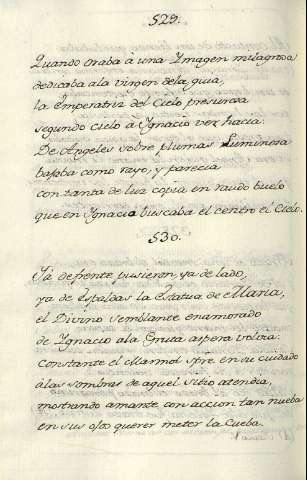 529.
Quando oraba à una Ymagen milagrosa
dedicaba a la virgen de la guia,
la Emperatriz del Cielo presurosa
segundo cielo à Ygnacio ver hacia:
De Angeles sobre plumas Luminosa
bajaba como rayo, y parecia
con tanta de luz copia en raudo buelo
que en Ygnacio buscaba el centro el Cielo.
530.
Yá de frente pusieron, ya de lado,
ya de Espaldas la Estatua de Maria,
el Divino semblante enamorado
de Ygnacio ala Gruta aspera volvia:
constante el Marmol spre. en su cuidado
à las sombras de aquel sitio atendia,
mostrando amante con accion tan nueba
en sus ojos querer meter la Cueba.